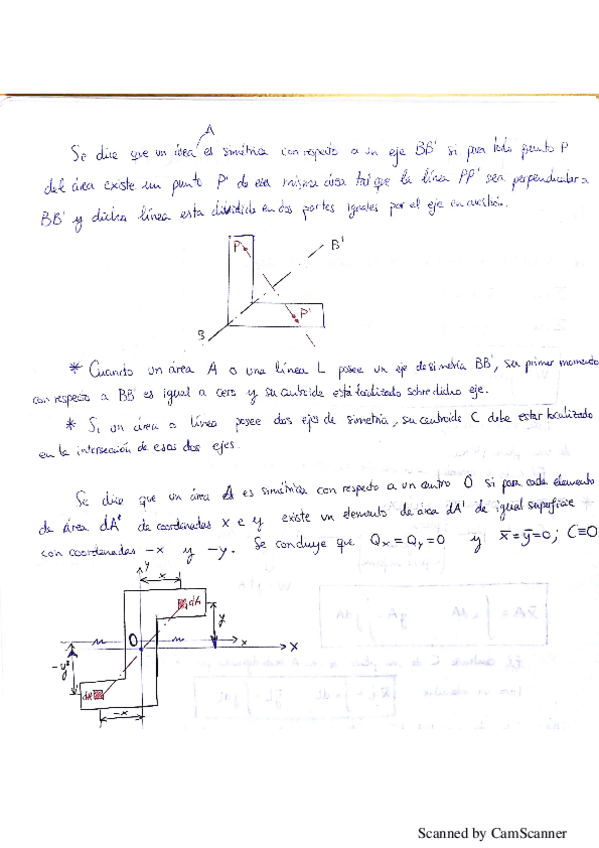 A
Se dice que un área es simétrica con respecto a un eje BB' si para todo punto P
del área existe un punto P' de esa misma área tal que la línea PP' sea perpendicular a
BB' y dicha línea esta dividida en dos partes iguales por el eje en cuestión.
P
B'
P'
B
* Cuando un área A o una línea L posee un eje de simetría BB', su primer momento
con respecto a BB' es igual a cero y su centroide está localizado sobre dicho eje.
* Si un área o línea posee dos ejes de simetría, su centroide C debe estar localizado
en la intersección de esos dos ejes.
Se dice que un área A es simétrica con respecto a un centro O si para cada elemento
de área dA de coordenadas x e y existe un elemento de área dA' de igual superficie
con coordenadas -x y -y. Se concluye que Qx = Qy = 0 y x̄ = ȳ = 0; C≡O
y
x
dA
y
O
x
x
-y
dA'
-x
Scanned by CamScanner